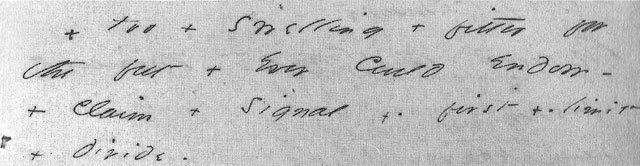 + too + Swelling + fitter for
the feet + Ever Could Endow -
+ Claim + Signal +. first +. limit
+ divide.